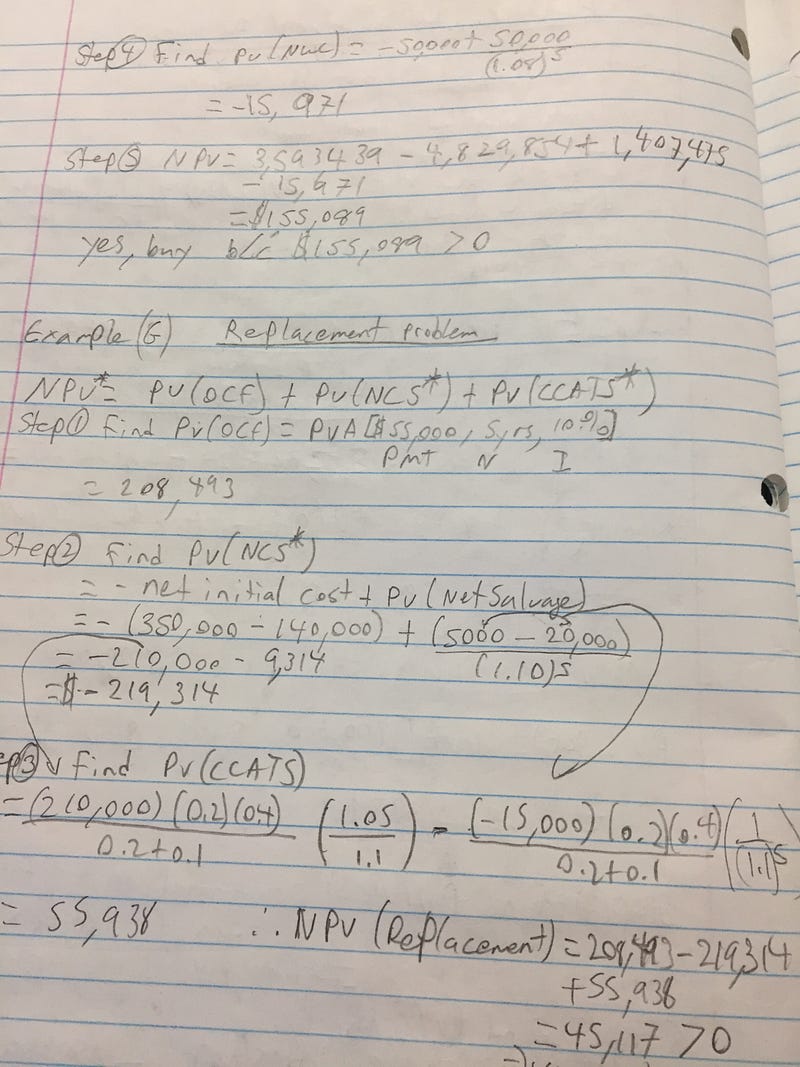 Step④ Find PV(NWC) = -50,000 + 50,000/(1.08)^5
= -15,971
Step⑤ NPV = 3,593439 - 4,829,854 + 1,407,475
- 15,971
= $155,089
yes, buy b/c $155,089 > 0
Example (G) Replacement problem
NPV* = PV(OCF) + PV(NCS*) + PV(CCATS*)
Step① Find PV(OCF) = PVA[$55,000, 5yrs, 10%]
PMT N I
= 208,493
Step② Find PV(NCS*)
= - net initial cost + PV(Net Salvage)
= - (350,000 - 140,000) + (5000 - 20,000)/(1.10)^5
= -210,000 - 9,314
= $-219,314
ep③ Find PV(CCATS)
= (210,000)(0.2)(0.4)/0.2+0.1 (1.05/1.1) - (-15,000)(0.2)(0.4)/0.2+0.1 (1/(1.1)^5
= 55,938 ∴ NPV (Replacement) = 208,493 - 219,314
+ 55,938
= 45,117 > 0